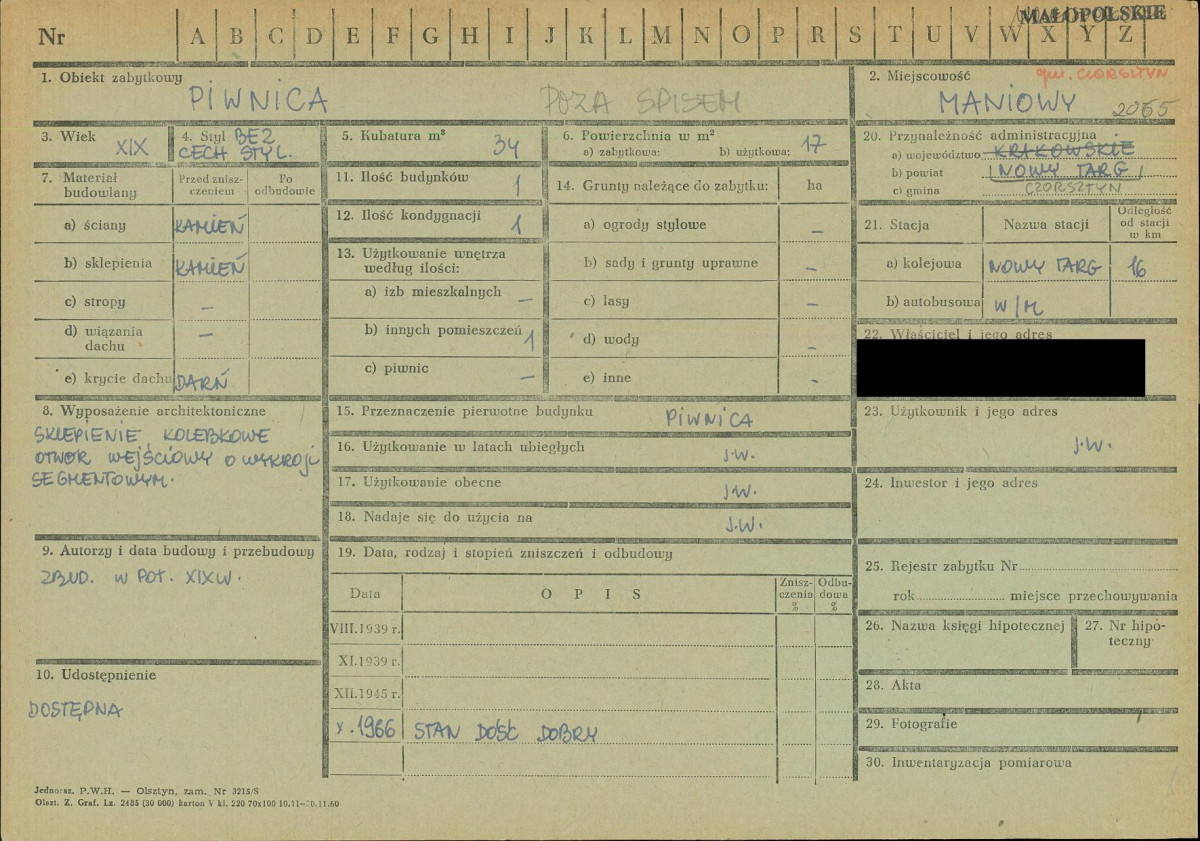 MAŁOPOLSKIE
Nr A B C D E F G H I J K L M N O P R S T U V W X Y Z
1. Obiekt zabytkowy
PIWNICA POZA SPISEM
2. Miejscowość gm. CZORSZTYN
MANIOWY 2065
3. Wiek XIX
4. Styl BEZ
CECH STYL.
5. Kubatura m³ 34
6. Powierzchnia w m²
a) zabytkowa: b) użytkowa: 17
7. Materiał budowlany
Przed znisz-
czeniem
Po
odbudowie
a) ściany KAMIEŃ
b) sklepienia KAMIEŃ
c) stropy –
d) wiązania
dachu –
e) krycie dachu DARŃ
8. Wyposażenie architektoniczne
SKLEPIENIE KOLEBKOWE
OTWÓR WEJŚCIOWY O WYKROJU
SEGMENTOWYM.
9. Autorzy i data budowy i przebudowy
ZBUD. W POŁ. XIX W.
10. Udostępnienie
DOSTĘPNA
11. Ilość budynków 1
12. Ilość kondygnacji 1
13. Użytkowanie wnętrza
według ilości:
a) izb mieszkalnych –
b) innych pomieszczeń 1
c) piwnic –
14. Grunty należące do zabytku: ha
a) ogrody stylowe –
b) sady i grunty uprawne –
c) lasy –
d) wody –
e) inne -
15. Przeznaczenie pierwotne budynku PIWNICA
16. Użytkowanie w latach ubiegłych J.W.
17. Użytkowanie obecne J.W.
18. Nadaje się do użycia na J.W.
19. Data, rodzaj i stopień zniszczeń i odbudowy
Data O P I S
Znisz-
czenia
%
Odbu-
dowa
%
VIII.1939 r.
XI.1939 r.
XII.1945 r.
X.1966 STAN DOŚĆ DOBRY
20. Przynależność administracyjna
a) województwo KRAKOWSKIE
b) powiat NOWY TARG
c) gmina CZORSZTYN
21. Stacja Nazwa stacji
Odległość
od stacji
w km
a) kolejowa NOWY TARG 16
b) autobusowa W/M
22. Właściciel i jego adres
23. Użytkownik i jego adres
J.W.
24. Inwestor i jego adres
25. Rejestr zabytku Nr
rok miejsce przechowywania
26. Nazwa księgi hipotecznej
27. Nr hipo-
teczny
28. Akta
29. Fotografie
30. Inwentaryzacja pomiarowa
Jednoraz. P.W.H. — Olsztyn, zam. Nr 3215/S
Olszt. Z. Graf. Lz. 2485 (30 000) karton V kl. 220 70x100 10.11—30.11.60